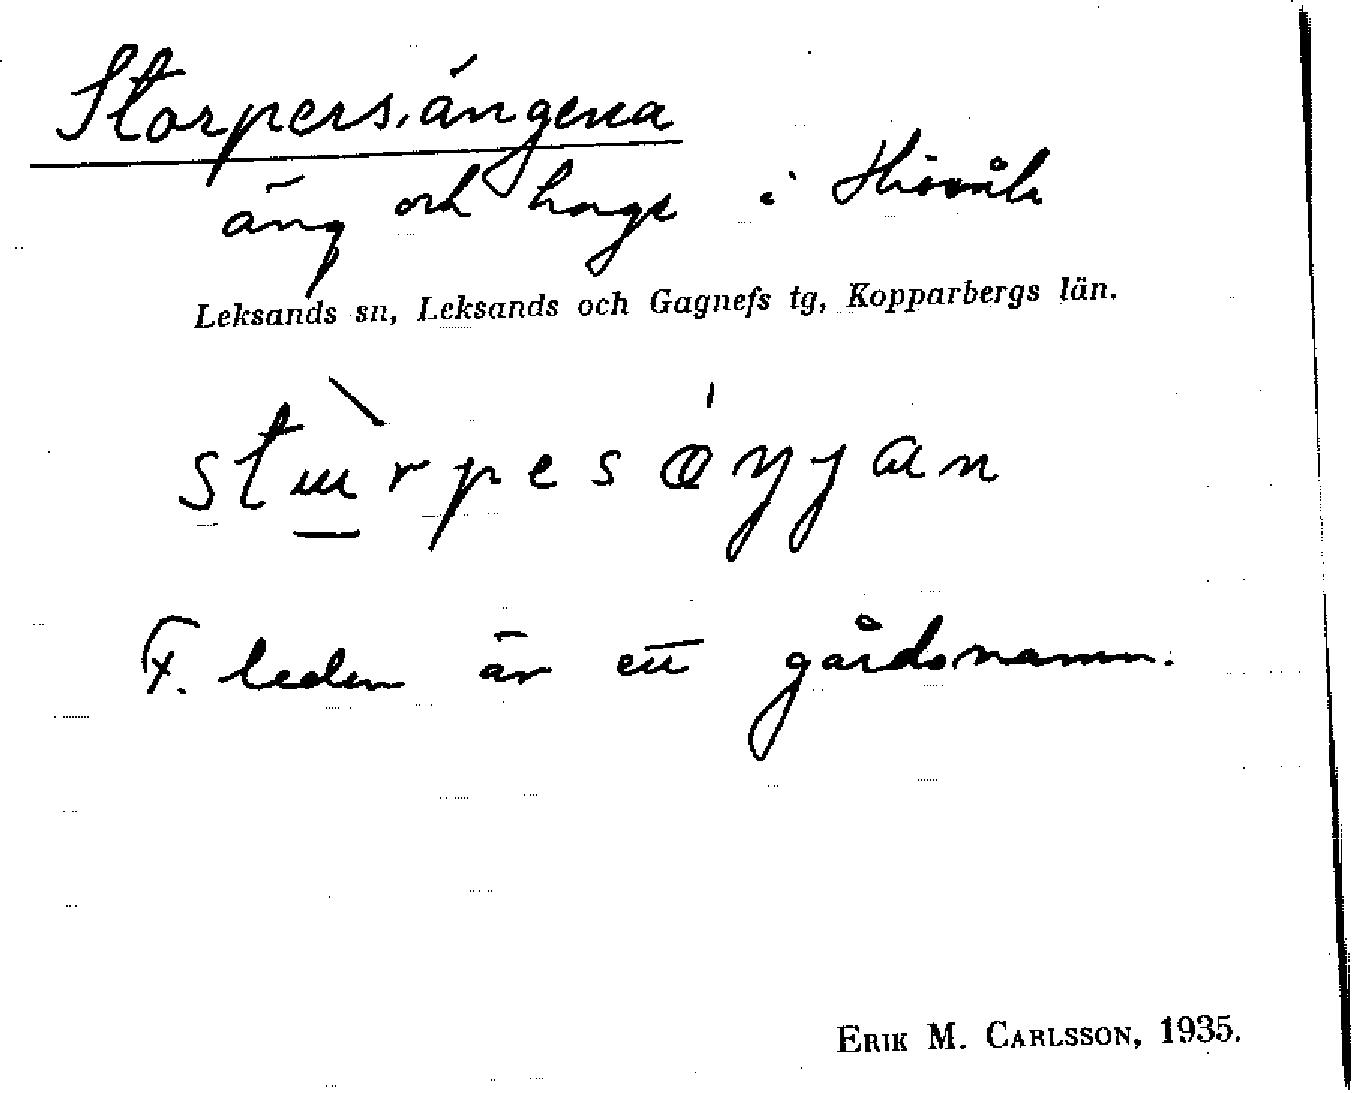 Storpersängena
äng och hage i Hisvåla
Leksands sn, Leksands och Gagnefs tg, Kopparbergs län.
stɯ̀rpesǽŋɟan
F. leden är ett gårdsnamn.
ERIK M. CARLSSON, 1935.